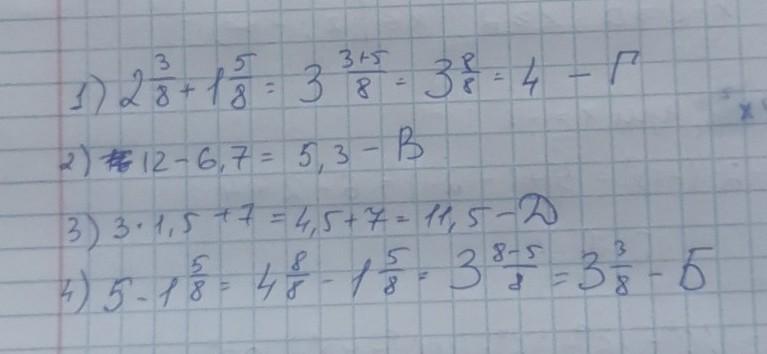 1) 2 3/8 + 1 5/8 = 3 3+5/8 = 3 8/8 = 4 - Г
2) 12 - 6,7 = 5,3 - В
3) 3 · 1,5 + 7 = 4,5 + 7 = 11,5 - Д
4) 5 - 1 5/8 = 4 8/8 - 1 5/8 = 3 8-5/8 = 3 3/8 - Б